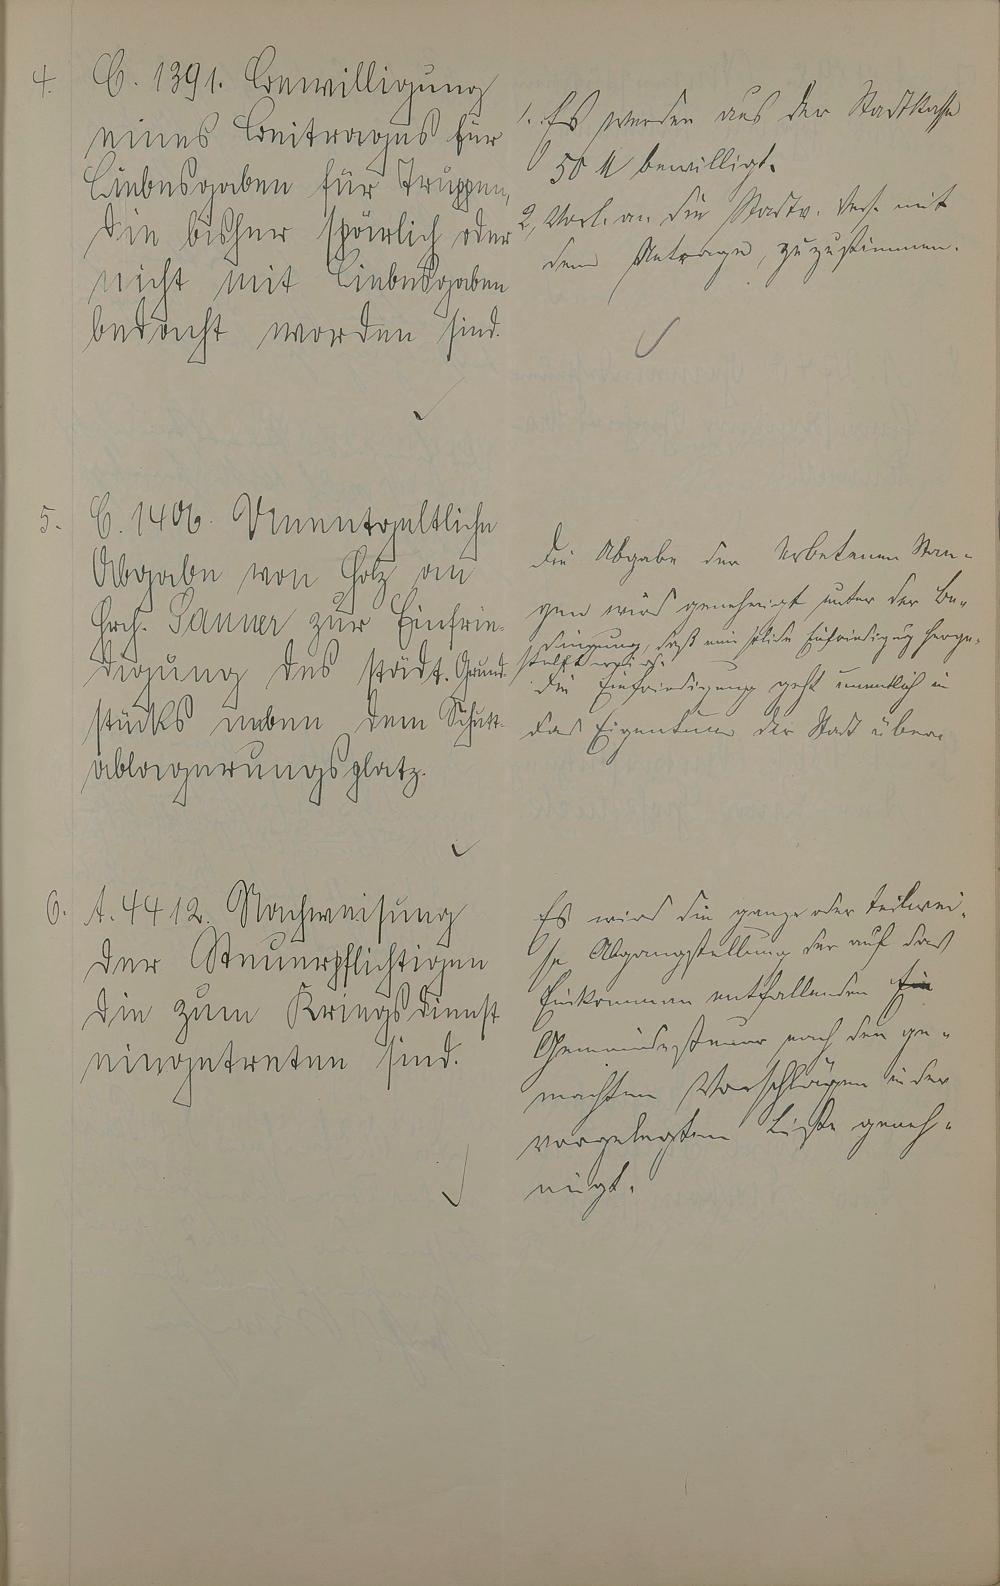 4. C. 1391. Bewilligung
eines Beitrages für
Liebesgaben für Truppen,
die bisher spärlich oder
nicht mit Liebesgaben
bedacht worden sind.
1. Es werden aus der Stadtkasse
50 M bewilligt.
2, Vorl. an die Stadtv. Vers. mit
dem Antrage, zuzustimmen.
5. C. 1406. Unentgeltliche
Abgabe von Holz an
Hrch. Sanner zur Einfrie-
digung des städt. Grund-
stücks neben dem Schutt-
ablagerungsplatz.
Die Abgabe der erbetenen Stan-
gen wird genehmigt unter der Be-
dingung, daß eine solide Einfriedigung herge-
stellt wird.
Die Einfriedigung geht unentgeltlich in
das Eigentum der Stadt über.
6. A. 4412. Nachweisung
der Steuerpflichtigen
die zum Kriegsdienst
eingetreten sind.
Es wird die ganze oder teilwei-
se Abgangstellung der auf das
Einkommen entfallenden Ein
Gemeindesteuer nach den ge-
machten Vorschlägen in der
vorgelegten Liste geneh-
migt.